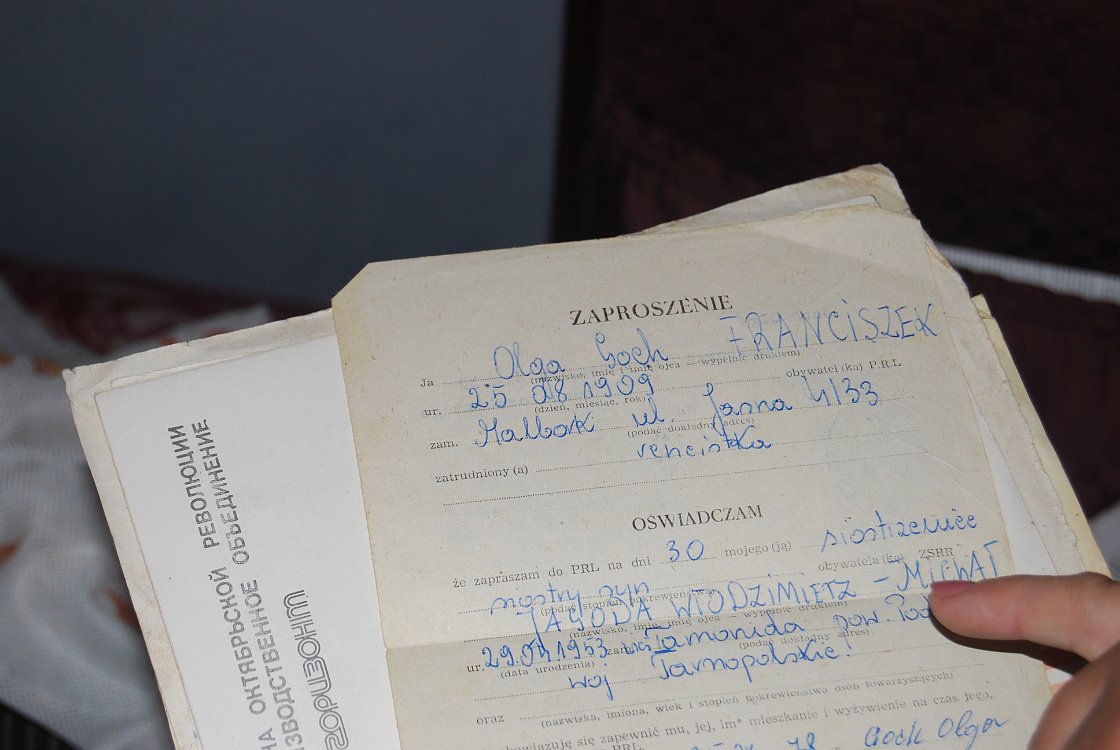 ZAPROSZENIE
Ja Olga Goch FRANCISZEK
(nazwisko, imię i imię ojca — wypełnić drukiem)
obywatel (ka) P.R.L
ur. 25 08 1909
(dzień, miesiąc, rok)
zam. Malbork ul. Jasna 4/33
(podać dokładny adres)
zatrudniony (a) rencistka
OŚWIADCZAM
że zapraszam do PRL na dni 30 mojego (ją) siostrzeniec
siostry syn obywatela (kę) ZSRR
(podać stopień pokrewieństwa)
JAGODA WŁODZIMIERZ - MICHAŁ
(nazwisko, imię, imię ojca — wypełnić drukiem)
ur. 29.04.1953 zam. pow.
(data urodzenia) (podać dokładny adres)
woj Tarnopolskie!
oraz
(nazwiska, imiona, wiek i stopień pokrewieństwa osób towarzyszących)
zapewnić mu, jej, im* mieszkanie i wyżywienie na czas jego,
PRL 78 Goch Olga
НА ОКТЯБРЬСКОЙ РЕВОЛЮЦИИ
ИЗВОДСТВЕННОЕ ОБЪЕДИНЕНИЕ